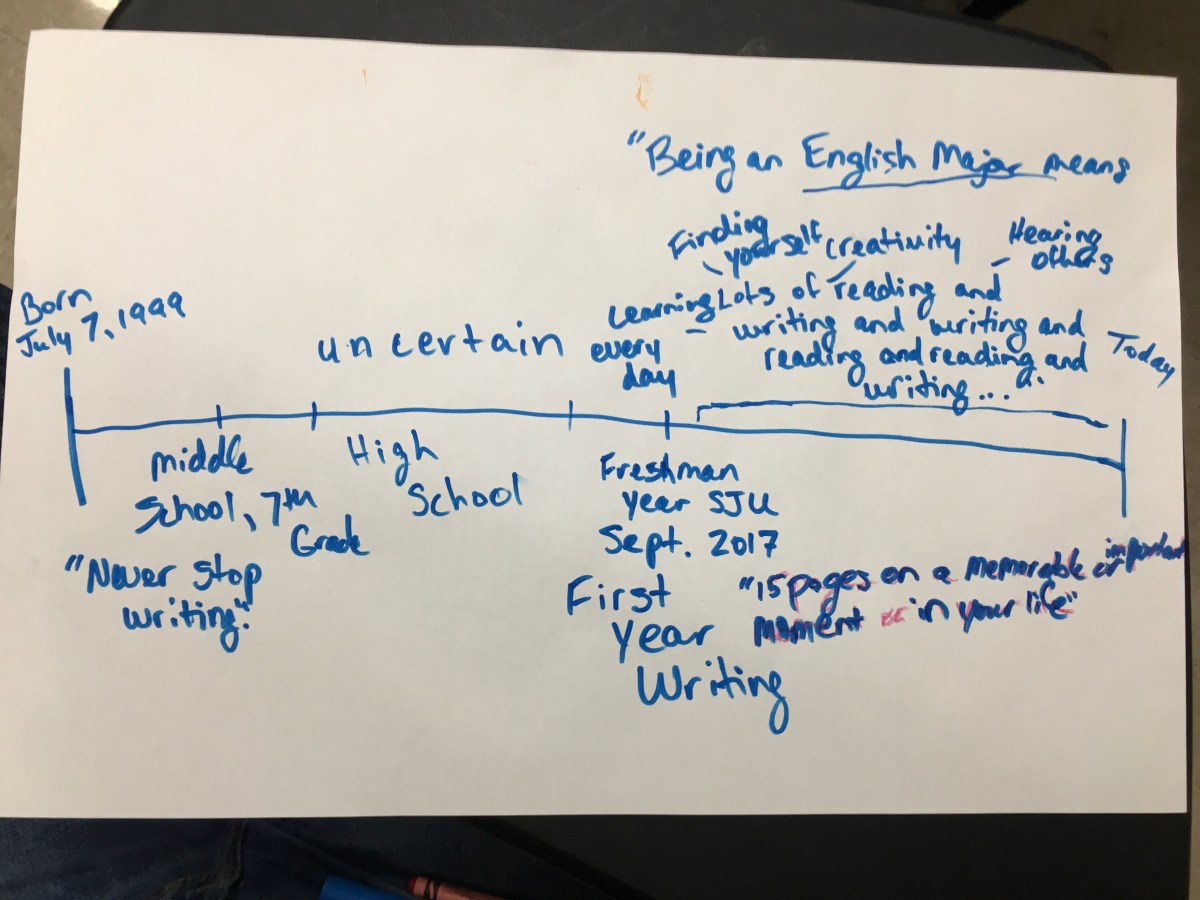 "Being an English Major means
Finding
yourself
creativity
Hearing
others
Learning
every
day
Lots of reading and
writing and writing and
reading and reading and
writing..."
Today
Born
July 7, 1999
uncertain
middle
School, 7th
Grade
"Never stop
writing."
High
School
Freshman
year SJU
Sept. 2017
First
year
Writing
"15 pages on a memorable or important
moment in your life"